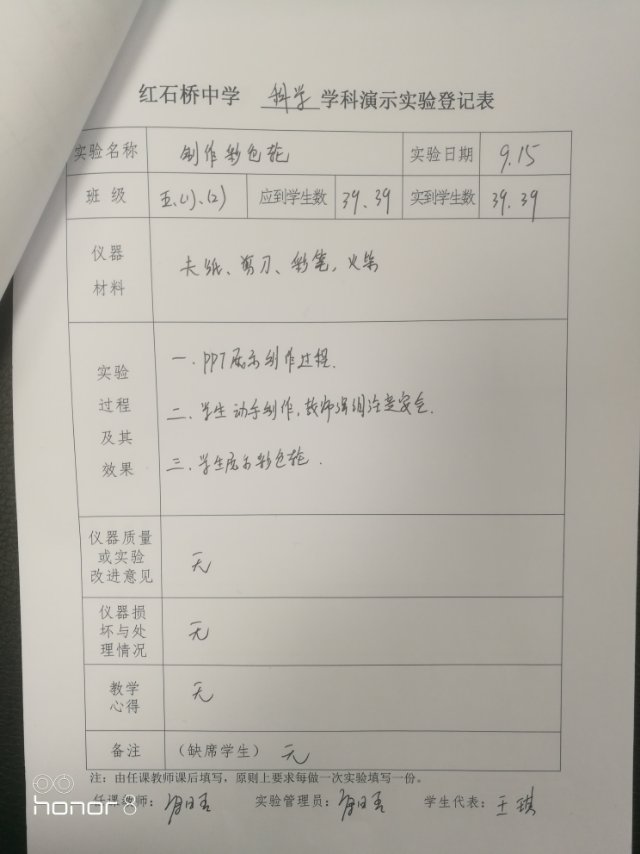 红石桥中学 科学 学科演示实验登记表
实验名称 制作彩色轮 实验日期 9.15
班 级 五、(1)、(2) 应到学生数 39、39 实到学生数 39、39
仪器
材料
卡纸、剪刀、彩笔、火柴
实验
过程
及其
效果
一.PPT展示制作过程.
二.学生动手制作,教师强调注意安全.
三.学生展示彩色轮.
仪器质量
或实验
改进意见
无
仪器损
坏与处
理情况
无
教学
心得
无
备注 (缺席学生) 无
注:由任课教师课后填写,原则上要求每做一次实验填写一份。
任课教师: 实验管理员: 学生代表:王琪
honor 8